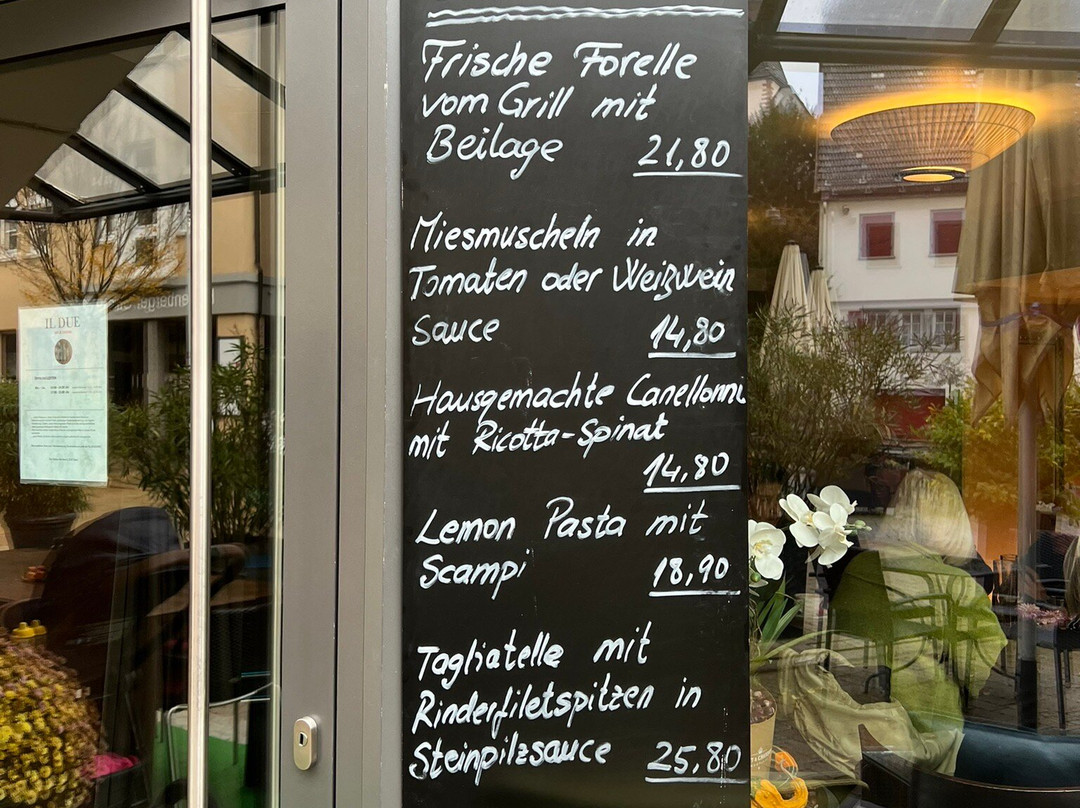 Frische Forelle
vom Grill mit
Beilage 21,80
Miesmuscheln in
Tomaten oder Weißwein
Sauce 14,80
Hausgemachte Canellonni
mit Ricotta-Spinat
14,80
Lemon Pasta mit
Scampi 18,90
Tagliatelle mit
Rinderfiletspitzen in
Steinpilzsauce 25,80
IL DUE